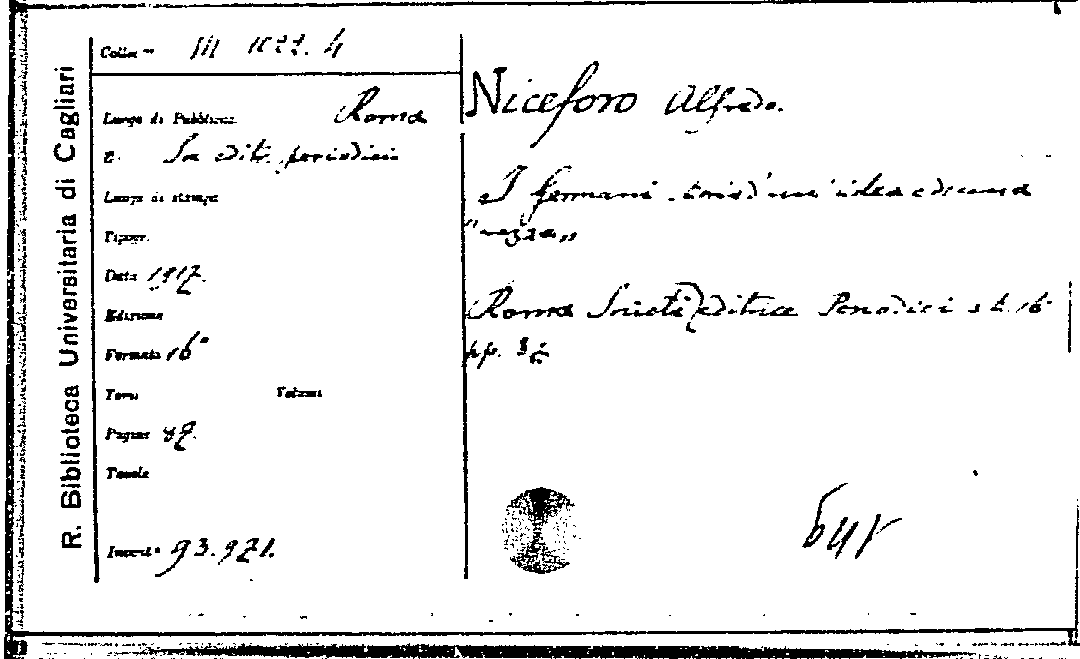 R. Biblioteca Universitaria di Cagliari
Colloc. III 1022. 4
Luogo di Pubblicaz. Roma
E. Soc. edit. periodici
Luogo di stampa
Tipogr.
Data 1917.
Edizione
Formato 16°
Tomi Volumi
Pagine 87.
Tavole
Invent. 93.921.
Niceforo Alfredo.
I germani. storia d'un'idea e di una
"razza„
Roma Società editrice Periodici s. d. 16°
pp.